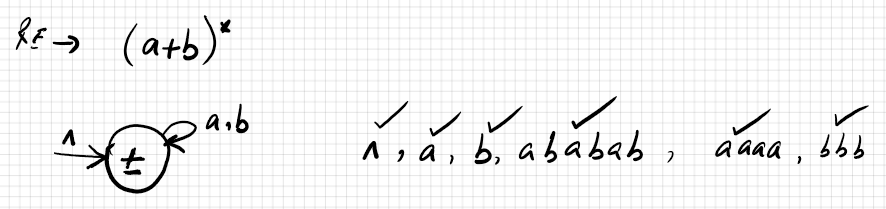 RE → (a+b)*
Λ ± a,b
Λ, a, b, ababab, aaaa, bbb